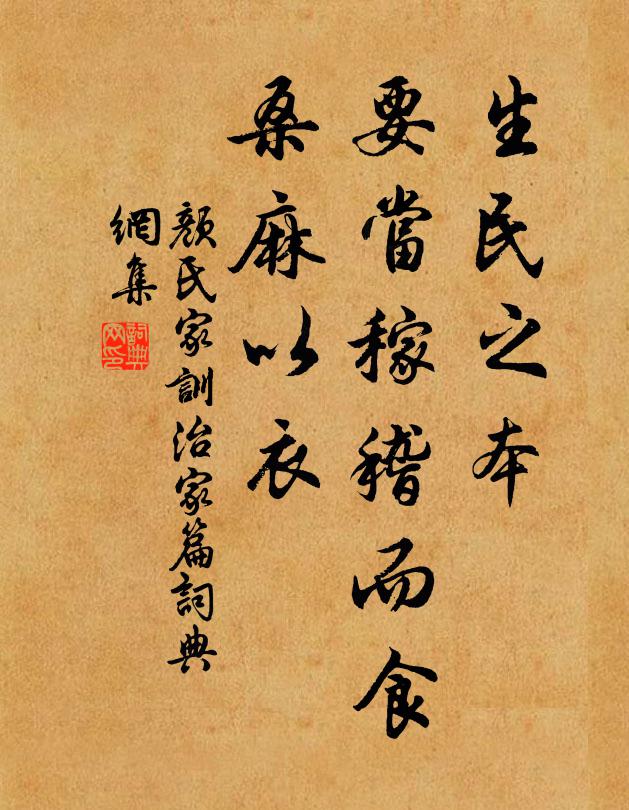 生民之本
要當稼穡而食
桑麻以衣
顏氏家訓治家篇詞典
網集
詞典
网印